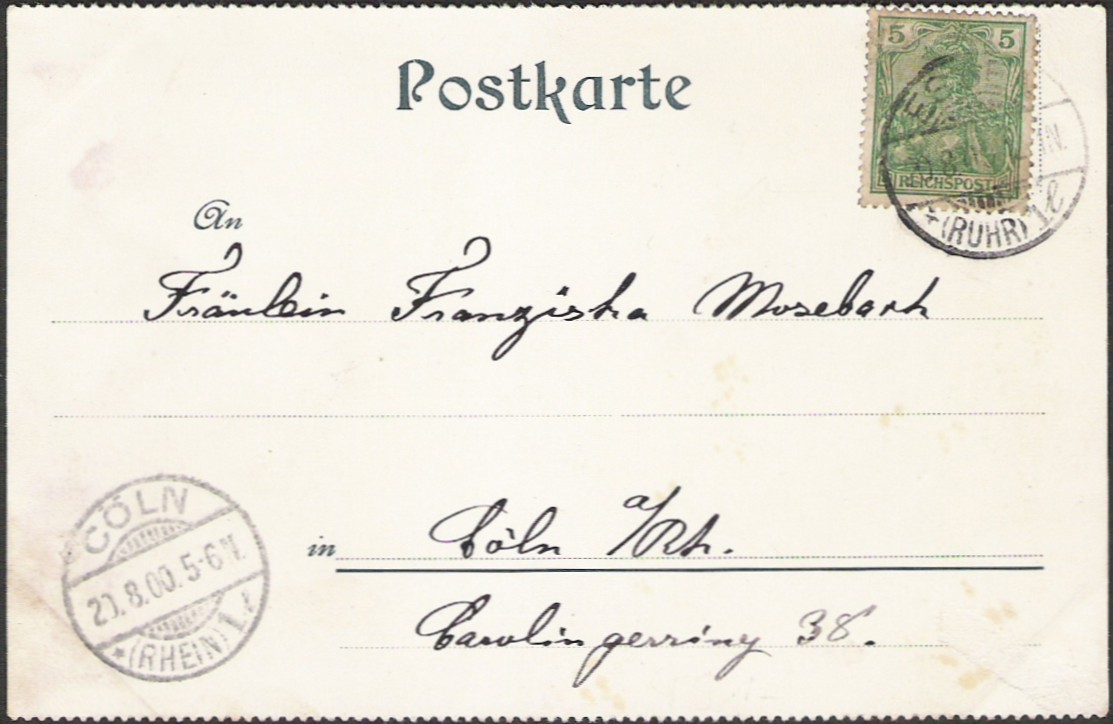 Postkarte
5 5
REICHSPOST
(RUHR)
An
Fräulein Franziska Mosebach
in Cöln a/Rh.
Carolingerring 38.
CÖLN
8.00.5-6N.
*(RHEIN)